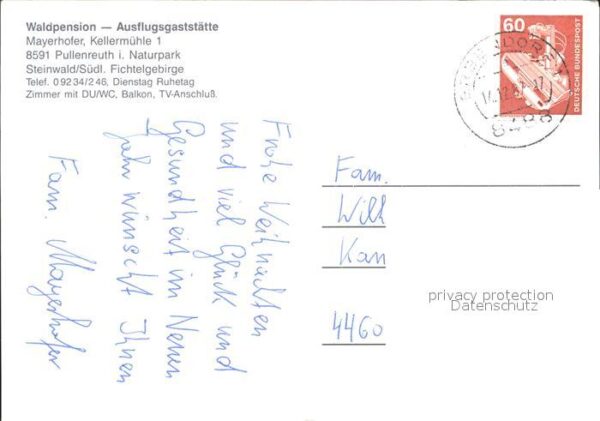 Waldpension — Ausflugsgaststätte
Mayerhofer, Kellermühle 1
8591 Pullenreuth i. Naturpark
Steinwald/Südl. Fichtelgebirge
Telef. 0 92 34/2 46, Dienstag Ruhetag
Zimmer mit DU/WC, Balkon, TV-Anschluß.
60
DEUTSCHE BUNDESPOST
Frohe Weihnachten
und viel Glück und
Gesundheit im Neuen
Jahr wünscht Ihnen
Fam. Mayerhofer
Fam.
Wilh
Kan
4460
privacy protection
Datenschutz